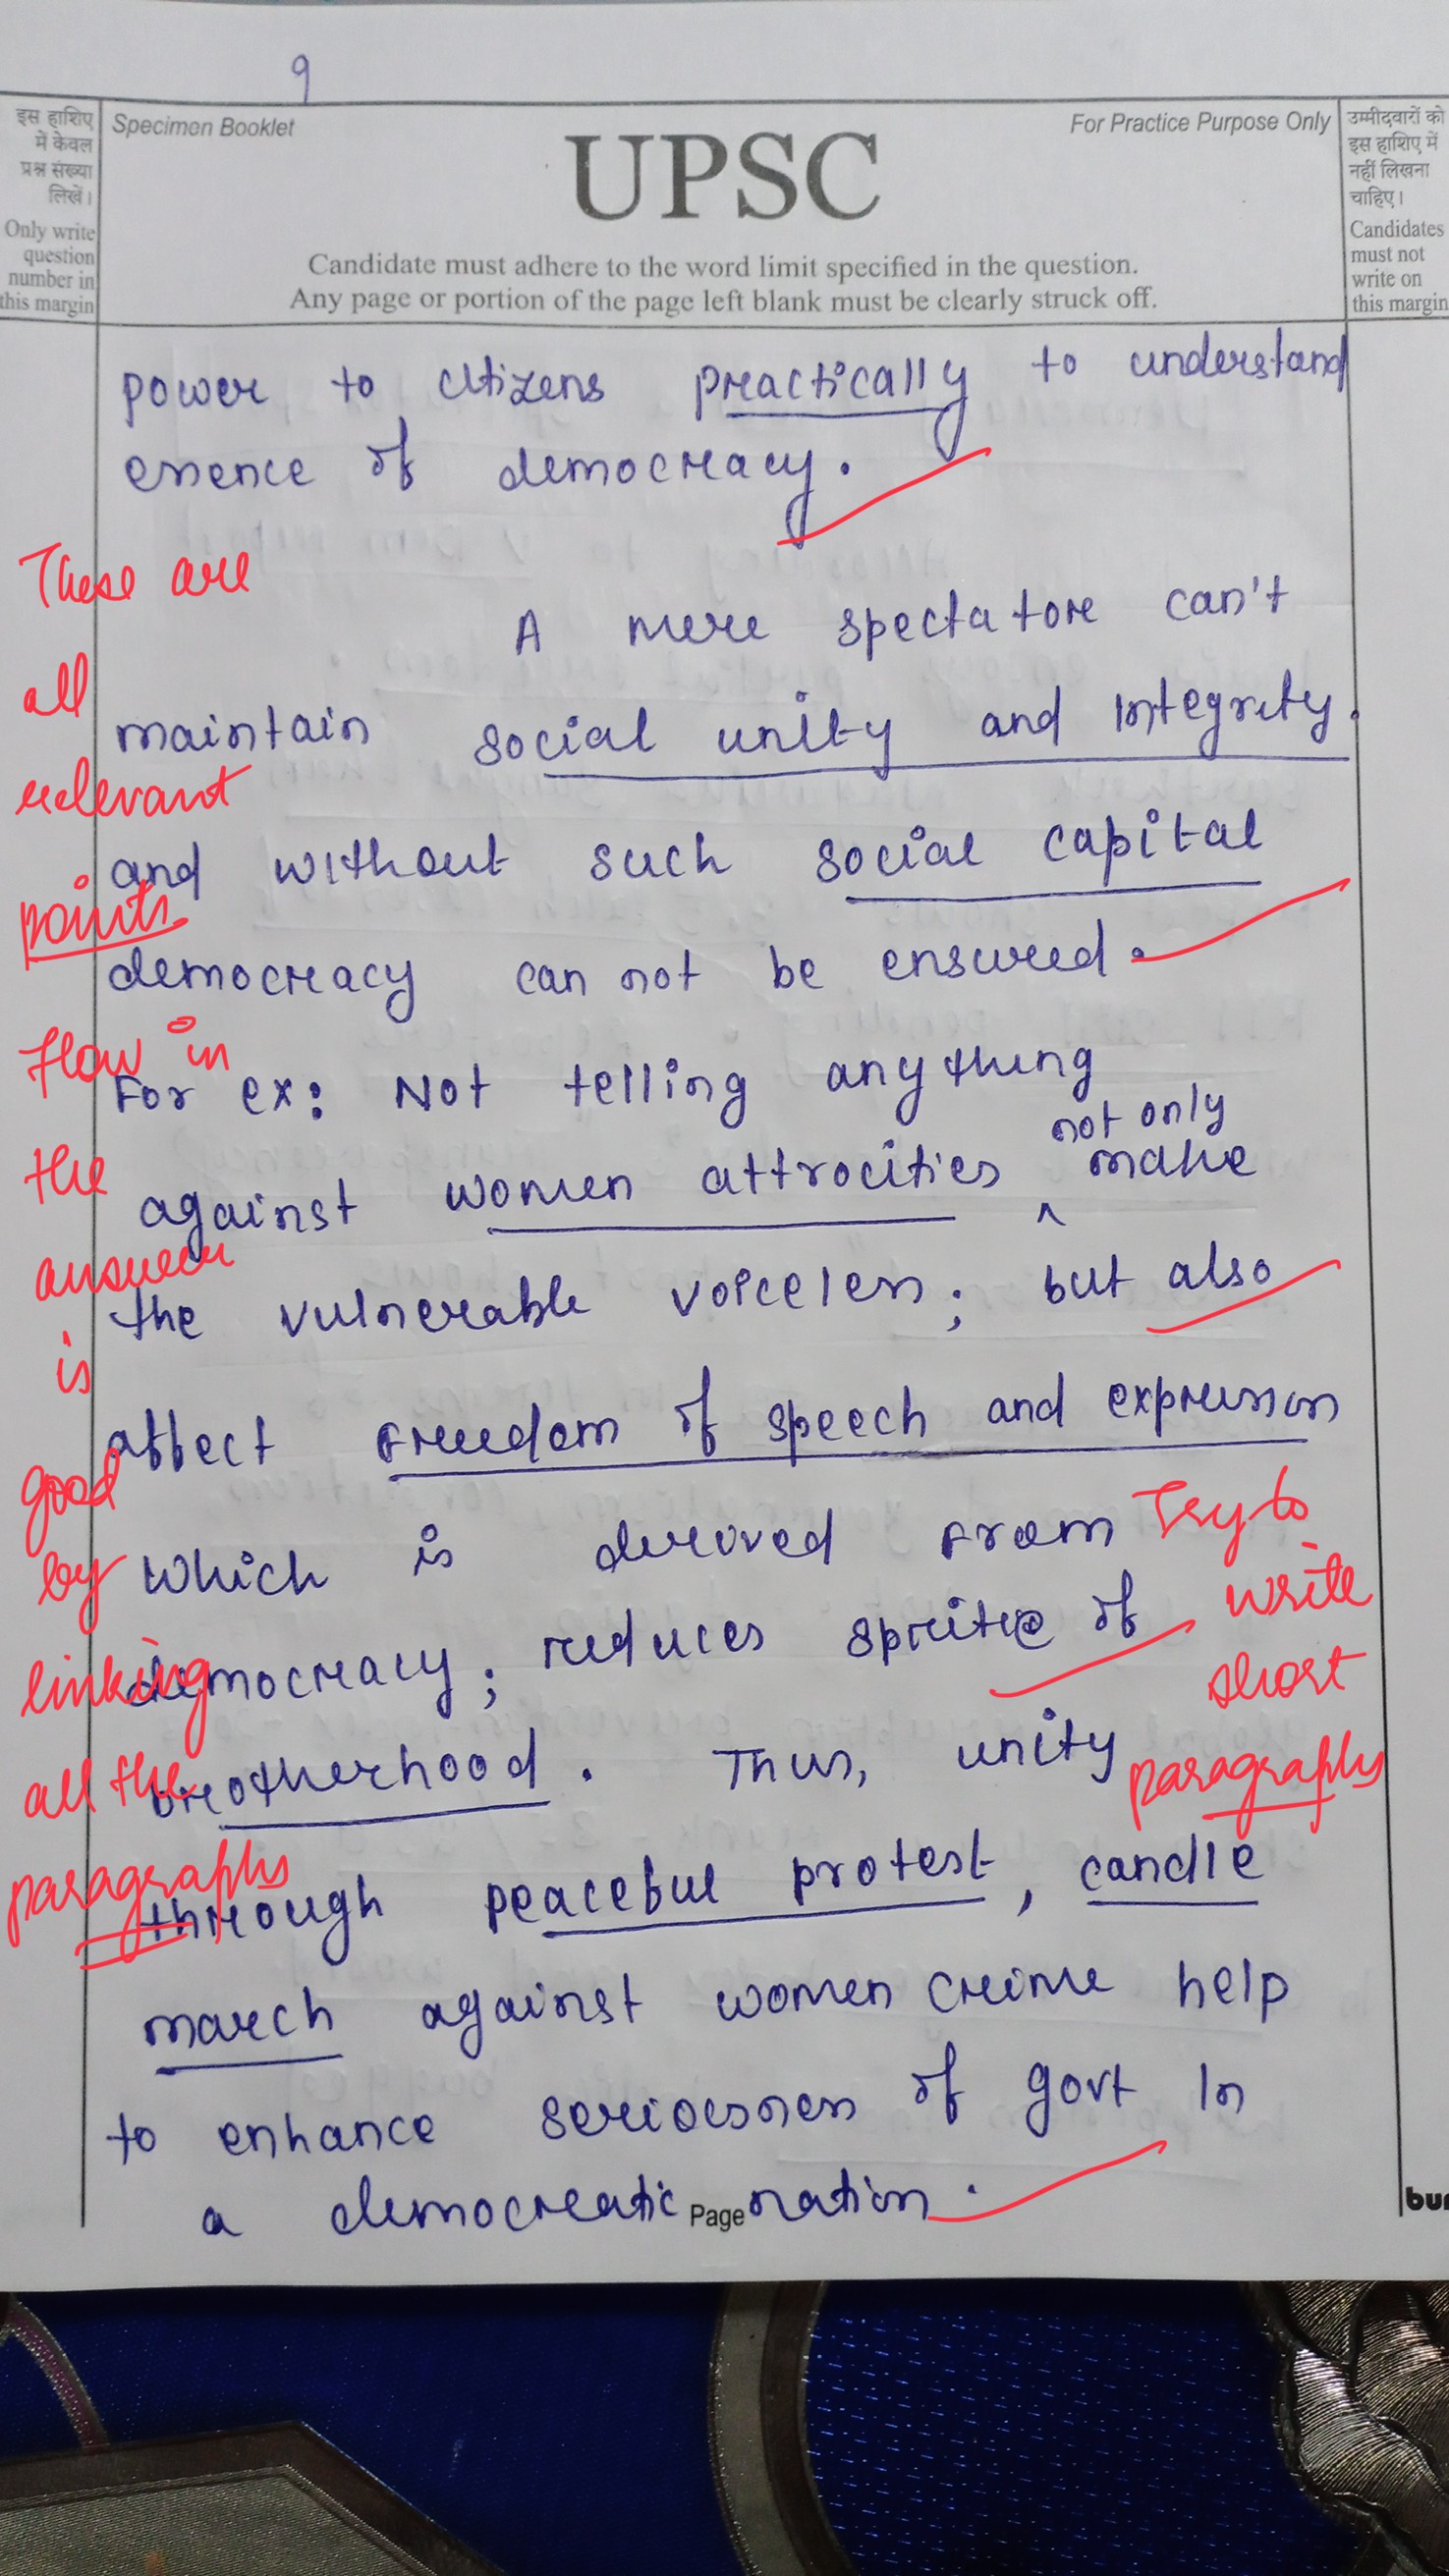 9
इस हाशिए
में केवल
प्रश्न संख्या
लिखें।
Only write
question
number in
this margin
Specimen Booklet
For Practice Purpose Only
UPSC
Candidate must adhere to the word limit specified in the question.
Any page or portion of the page left blank must be clearly struck off.
उम्मीदवारों को
इस हाशिए में
नहीं लिखना
चाहिए।
Candidates
must not
write on
this margin
power to citizens practically to understand
essence of democracy.
A mere spectatore can't
maintain social unity and integrity.
and without such social capital
democracy can not be ensured.
For ex: Not telling anything
not only
against women attrocities ^ make
the vulnerable voiceless; but also
affect Freedom of speech and expression
which is derived from
democracy; reduces spirit of
brotherhood. Thus, unity
through peaceful protest, candle
march against women crime help
to enhance seriousness of govt in
a democratic nation.
Page
These are
all
relevant
points
Flow in
the
answer
is
good
by
linking
all the
paragraphs
Try to
write
short
paragraphs